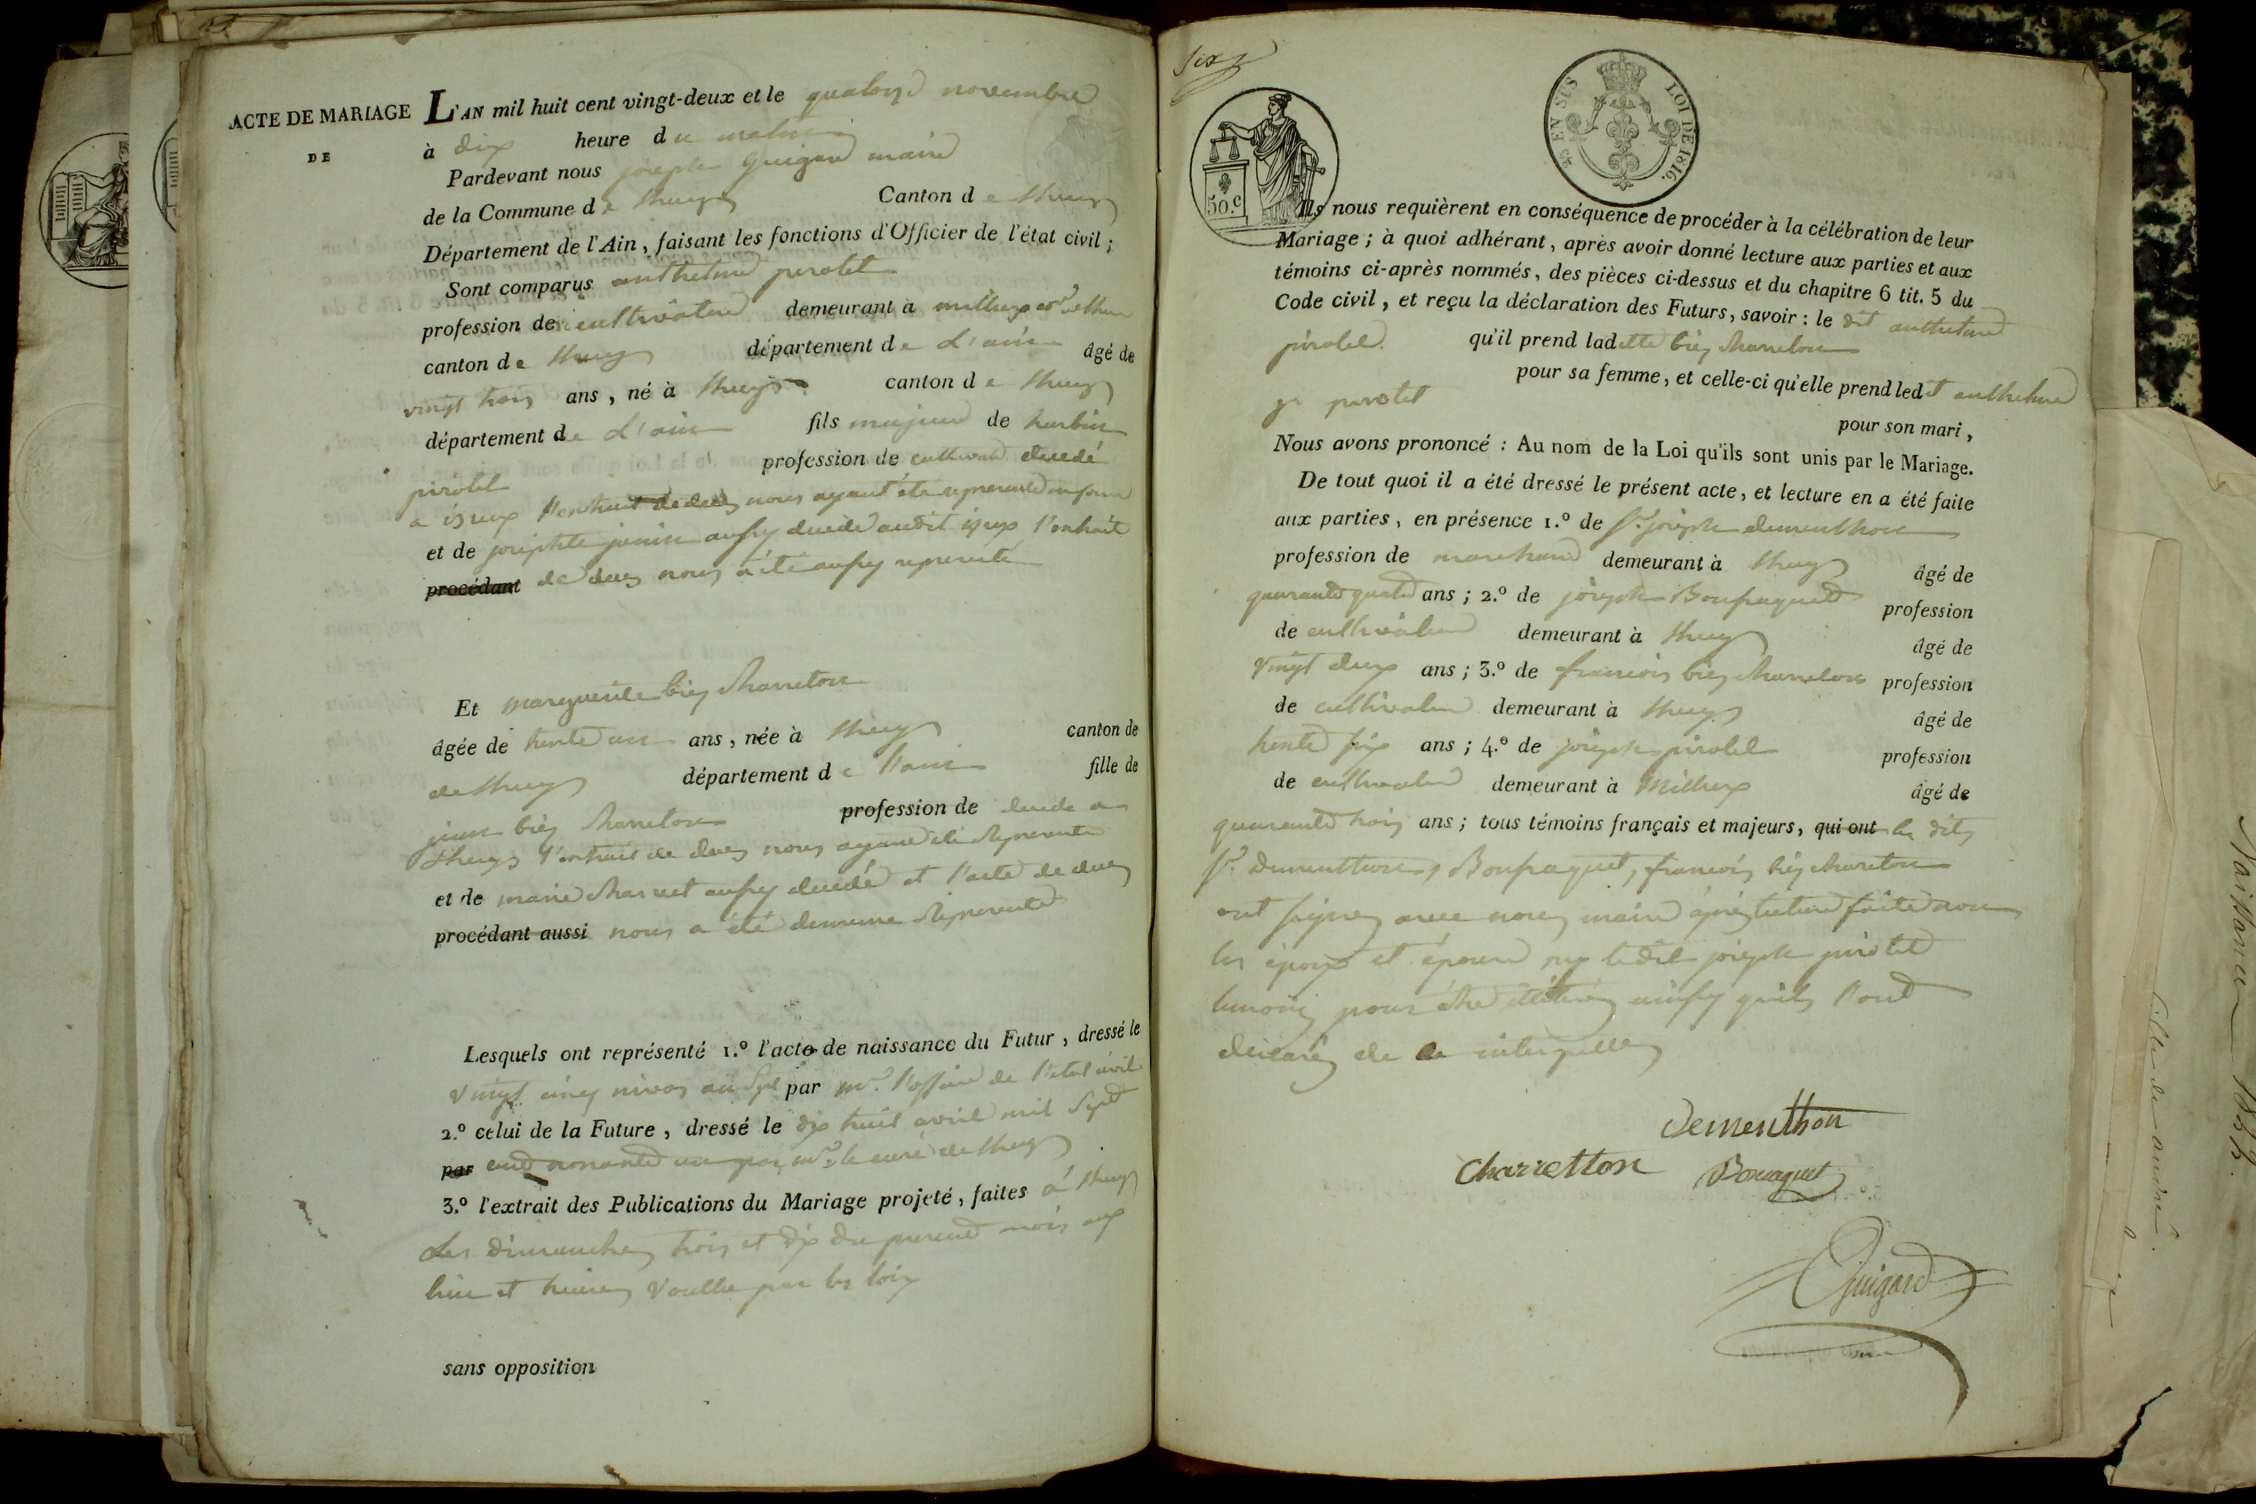 ACTE DE MARIAGE
DE
L'AN mil huit cent vingt-deux et le quatorze novembre
à dix heure du matin
Pardevant nous joseph Guigard maire
de la Commune de Lhuys Canton de Lhuys
Département de l'Ain, faisant les fonctions d'Officier de l'état civil;
Sont comparus anthelme pirotet
profession de cultivateur demeurant à millieux
canton de Lhuys département de L'ain âgé de
vingt trois ans, né à Lhuys canton de Lhuys
département de L'ain fils majeur de
pirotet profession de cultivateur décédé
a isieux l'extrait de décès nous ayant été representé
et de josephte janin aussy décédé audit isieux l'extrait
procédant de décès nous a été aussy representé
Et marguerite biez charreton
âgée de trente un ans, née à Lhuys canton de
de Lhuys département de l'ain fille de
jean biez charreton profession de décédé a
Lhuys l'extrait de décès nous ayant été representé
et de marie charvet aussy décédé et l'acte de décès
procédant aussi nous a été de meme representé
Lesquels ont représenté 1.º l'acte de naissance du Futur, dressé le
vingt cinq nivos an sept par mr. l'officier de l'etat civil
2.º celui de la Future, dressé le dix huit avril mil sept
par cent nonante un par mr. le curé de Lhuys
3.º l'extrait des Publications du Mariage projeté, faites à Lhuys
Les dimanches trois et dix du present mois aux
lieu et heures voullu par les loix
sans opposition
Six
50.c
EN SUS
LOI DE 1816.
Ils nous requièrent en conséquence de procéder à la célébration de leur
Mariage; à quoi adhérant, après avoir donné lecture aux parties et aux
témoins ci-après nommés, des pièces ci-dessus et du chapitre 6 tit. 5 du
Code civil, et reçu la déclaration des Futurs, savoir: le dit anthelme
pirotet qu'il prend ladette biez charreton
pour sa femme, et celle-ci qu'elle prend ledt anthelme
pirotet pour son mari,
Nous avons prononcé: Au nom de la Loi qu'ils sont unis par le Mariage.
De tout quoi il a été dressé le présent acte, et lecture en a été faite
aux parties, en présence 1.º de sr. joseph dementhon
profession de marchand demeurant à Lhuys âgé de
quarante quatre ans; 2.º de joseph Boussaguet profession
de cultivateur demeurant à Lhuys âgé de
vingt deux ans; 3.º de francois biez charreton profession
de cultivateur demeurant à Lhuys âgé de
trente six ans; 4.º de joseph pirotet profession
de cultivateur demeurant à Millieux âgé de
quarante trois ans; tous témoins français et majeurs, qui ont les dits
sr. Dementhon, Boussaguet, francois biez charreton
ont signez avec nous maire après lecture faite non
les epoux et épouse ny ledit joseph pirotet
temoin pour être illitérés ainsy qu'ils l'ont
declarés de ce interpellés
Dementhon
Charretton Bousaguet
Guigard